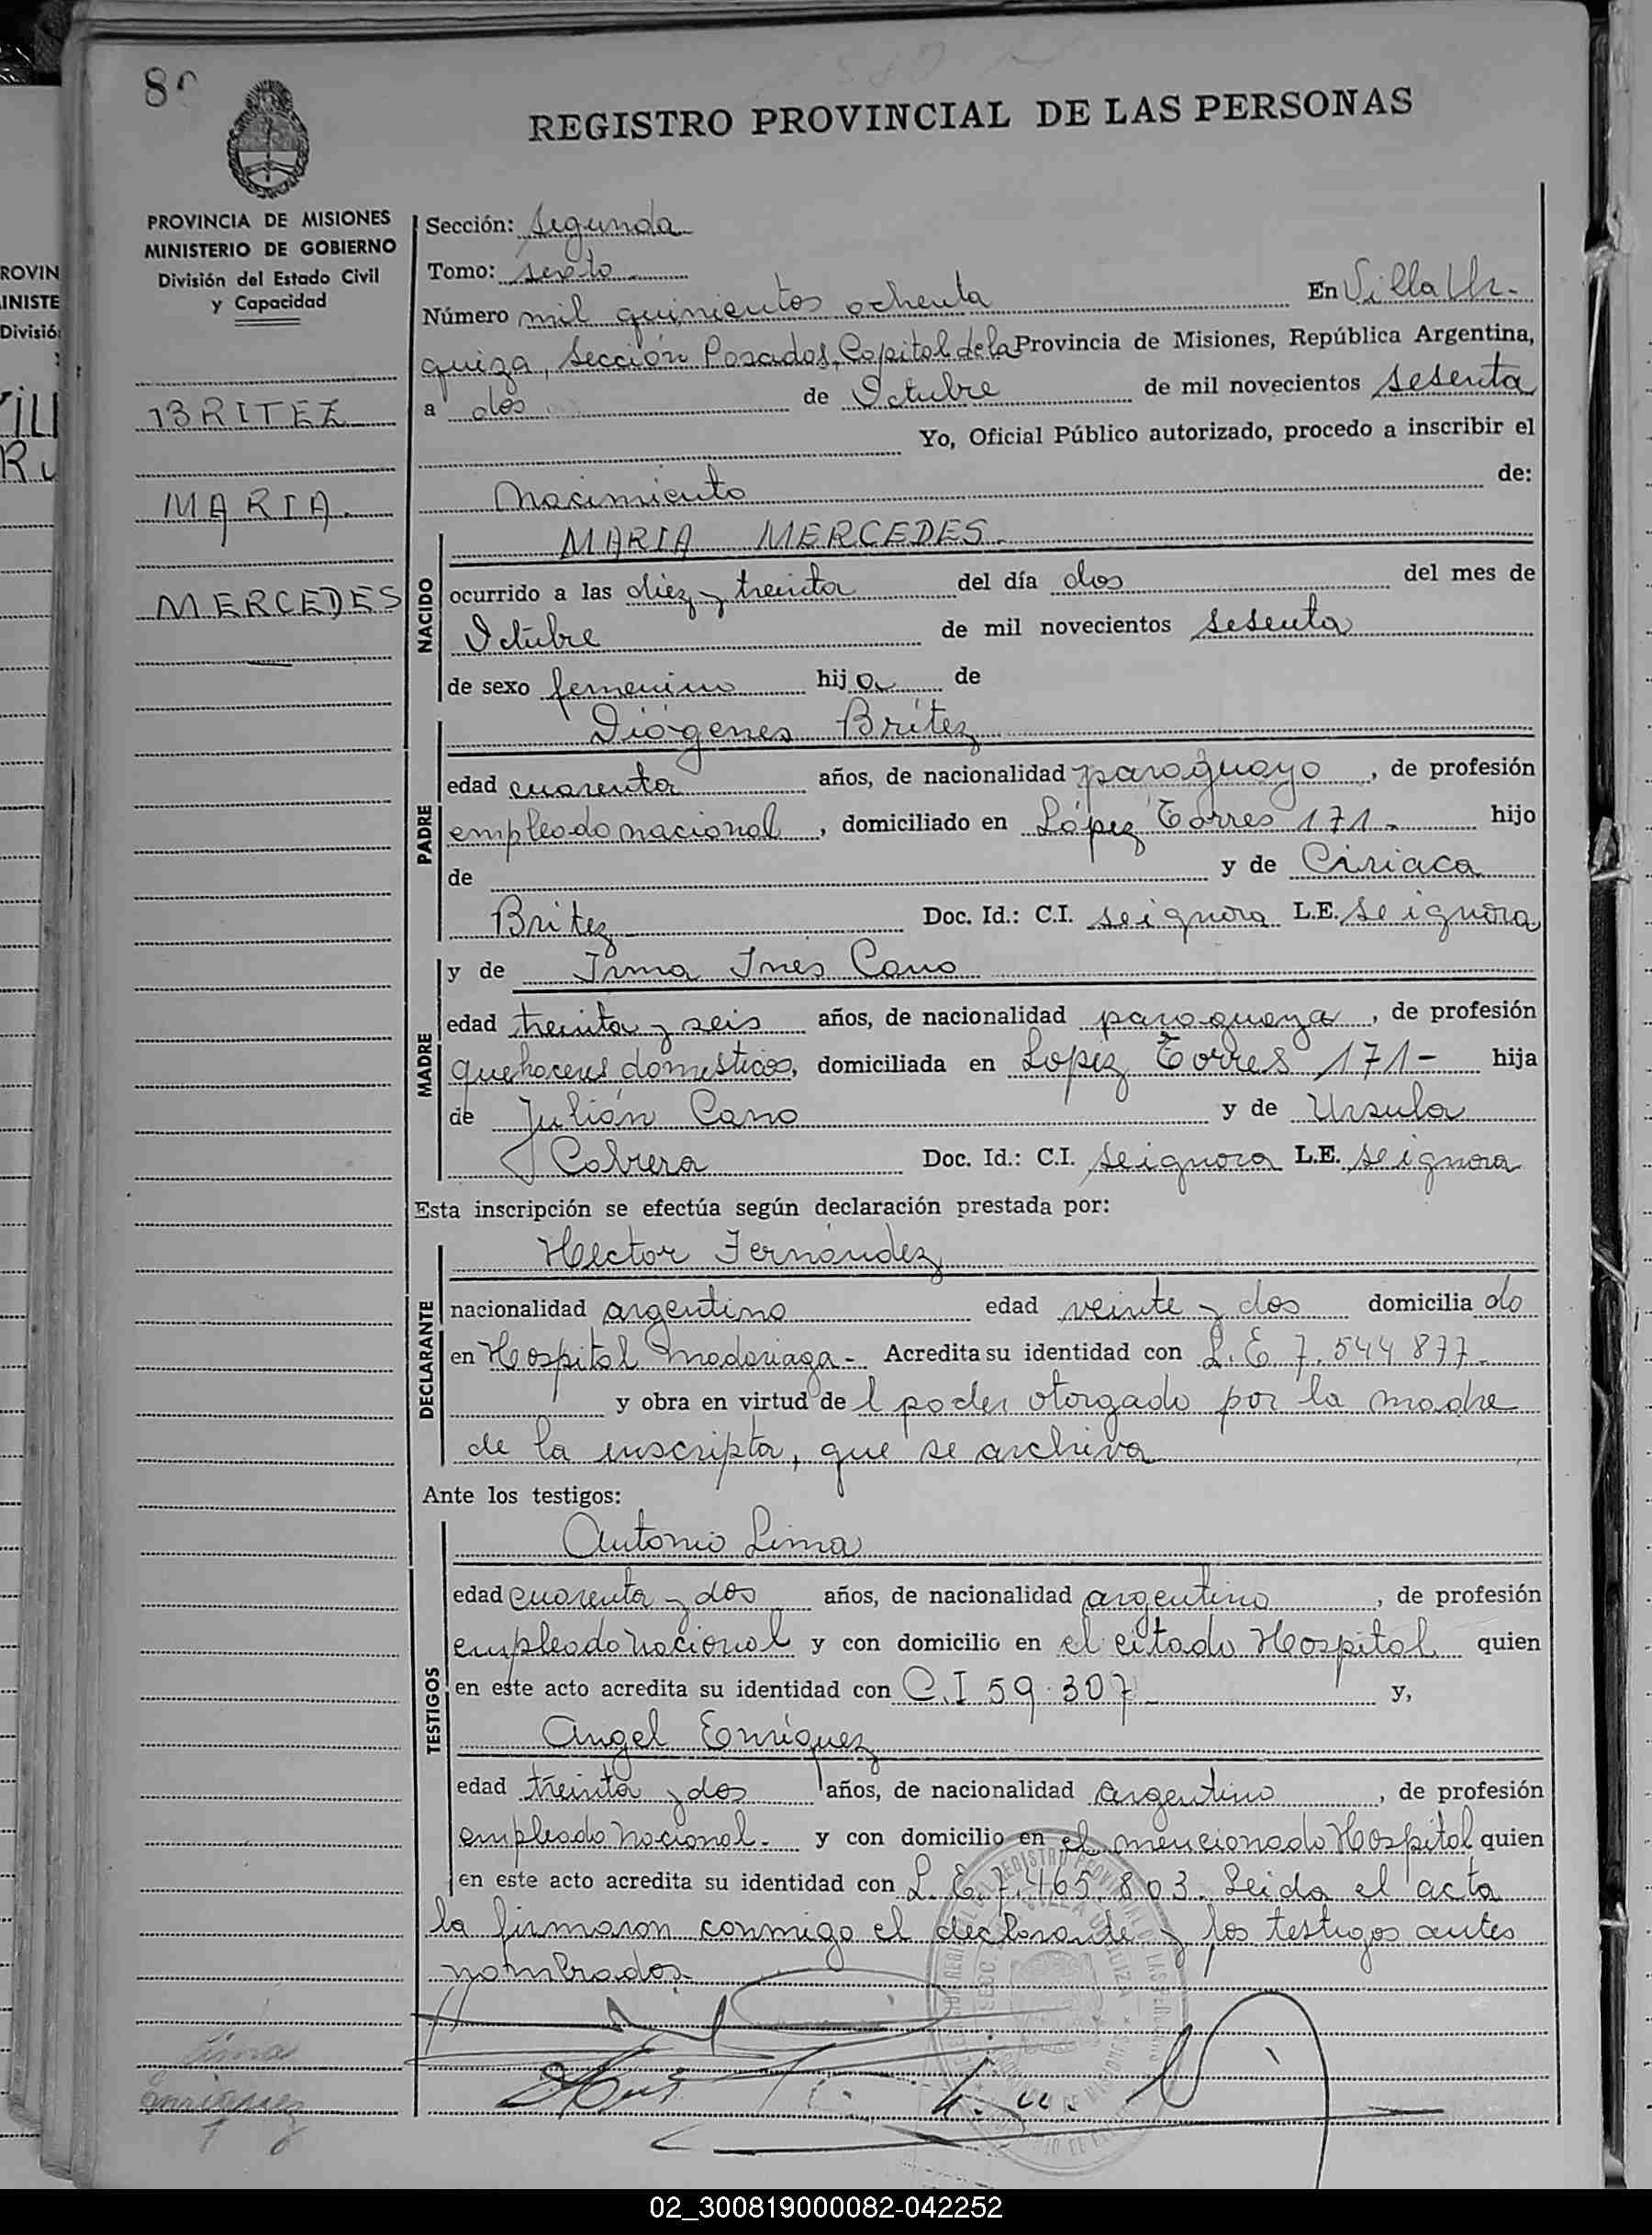 8
REGISTRO PROVINCIAL DE LAS PERSONAS
PROVINCIA DE MISIONES
MINISTERIO DE GOBIERNO
División del Estado Civil
y Capacidad
BRITEZ
MARIA
MERCEDES
Sección: Segunda
Tomo: sexto
Número mil quinientos ochenta En Villa Ur-
quiza, Sección Posadas, Capital de la Provincia de Misiones, República Argentina,
a dos de Octubre de mil novecientos sesenta
Yo, Oficial Público autorizado, procedo a inscribir el
Nacimiento de:
NACIDO
MARIA MERCEDES
ocurrido a las diez y treinta del día dos del mes de
Octubre de mil novecientos sesenta
de sexo femenino hija de
PADRE
Diógenes Britez
edad cuarenta años, de nacionalidad paraguayo, de profesión
empleado nacional, domiciliado en López Torres 171- hijo
de y de Ciriaca
Britez Doc. Id.: C.I. se ignora L.E. se ignora
MADRE
y de Irma Inés Cano
edad treinta y seis años, de nacionalidad paraguaya, de profesión
quehaceres domésticos, domiciliada en López Torres 171- hija
de Julián Cano y de Ursula
Cabrera Doc. Id.: C.I. se ignora L.E. se ignora
Esta inscripción se efectúa según declaración prestada por:
DECLARANTE
Hector Fernández
nacionalidad argentino edad veinte y dos domiciliado
en Hospital Madariaga- Acredita su identidad con L.E 7.544877-
y obra en virtud del poder otorgado por la madre
de la inscripta, que se archiva
Ante los testigos:
TESTIGOS
Antonio Lima
edad cuarenta y dos años, de nacionalidad argentino, de profesión
empleado nacional y con domicilio en el citado Hospital quien
en este acto acredita su identidad con C.I 59.307 y,
Angel Enriquez
edad treinta y dos años, de nacionalidad argentino, de profesión
empleado nacional- y con domicilio en el mencionado Hospital quien
en este acto acredita su identidad con L.E. 7.465.803. Leida el acta
la firmaron conmigo el declarante y los testigos antes
nombrados-
Lima
Enriquez
02_300819000082-042252